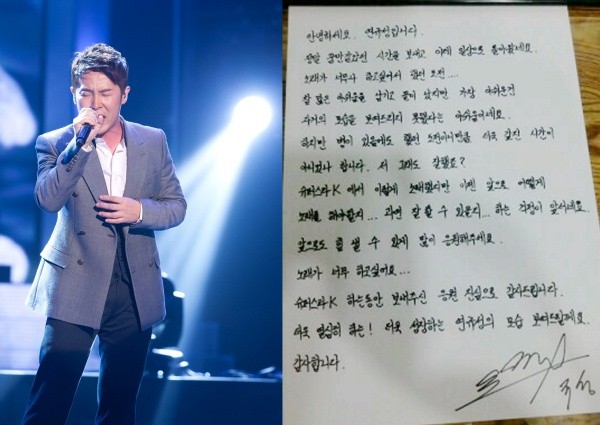 안녕하세요. 연규성입니다.
정말 꿈만같았던 시간을 보내고 이제 일상으로 돌아왔네요.
노래가 너무나 하고싶어서 했던 도전....
참 많은 아쉬움을 남기고 끝이 났지만 가장 아쉬운건
과거의 모습을 보여드리지 못했다는 아쉬움이네요.
하지만 병이 있음에도 했던 도전이니만큼 더욱 값진 시간이
아니었나 합니다. 저 그래도 잘했죠?
슈퍼스타K 에서 이렇게 노래했지만 이젠 앞으로 어떻게
노래를 해야할지... 과연 잘 할 수 있을지... 하는 걱정이 앞서네요.
앞으로도 힘 낼 수 있게 많이 응원해주세요.
노래가 너무 하고싶어요...
슈퍼스타K 하는동안 보내주신 응원 진심으로 감사드립니다.
더욱 열심히 하는! 더욱 성장하는 연규성의 모습 보여드릴께요.
감사합니다.
규성